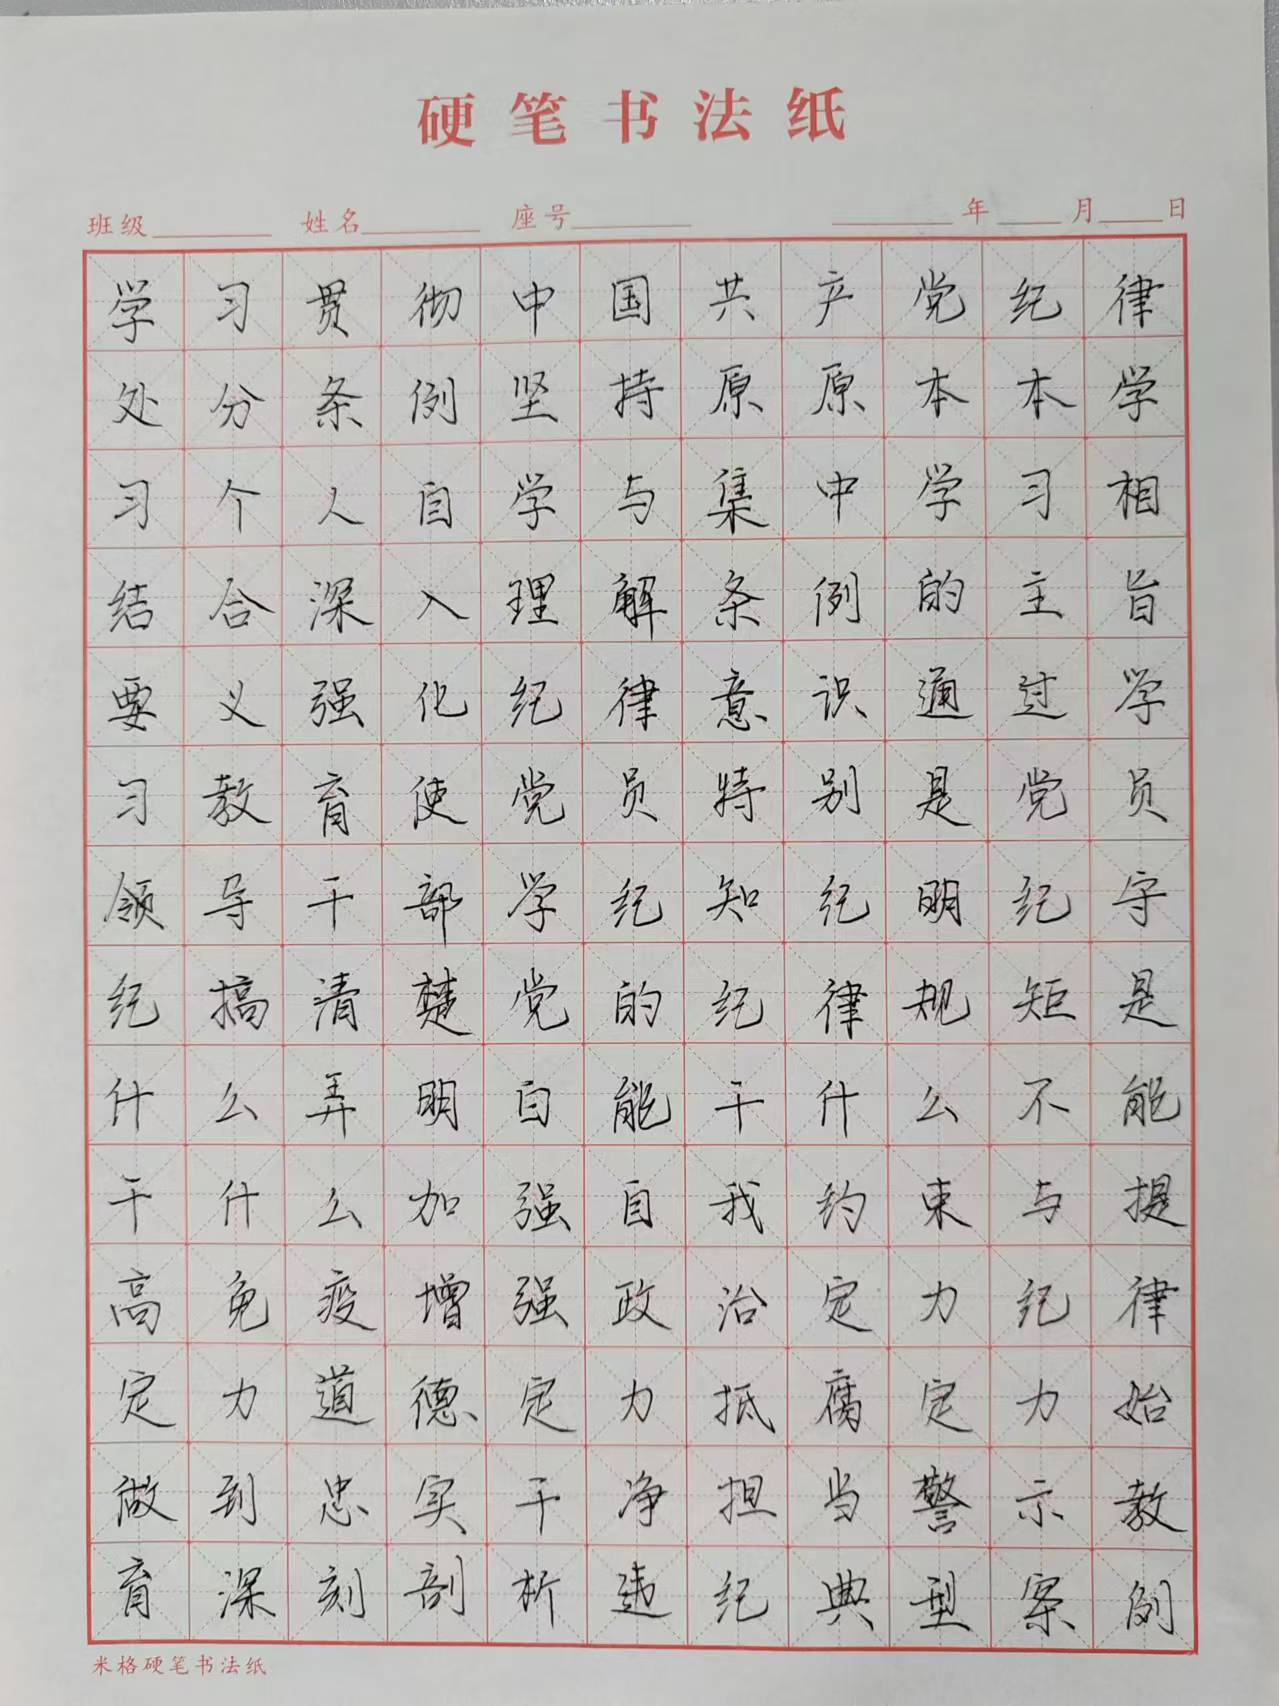 硬笔书法纸
班级 姓名 座号 年 月 日
学习贯彻中国共产党纪律
处分条例坚持原原本本学
习个人自学与集中学习相
结合深入理解条例的主旨
要义强化纪律意识通过学
习教育使党员特别是党员
领导干部学纪知纪明纪守
纪搞清楚党的纪律规矩是
什么弄明白能干什么不能
干什么加强自我约束与提
高免疫增强政治定力纪律
定力道德定力抵腐定力始
做到忠实干净担当警示教
育深刻剖析违纪典型案例
米格硬笔书法纸